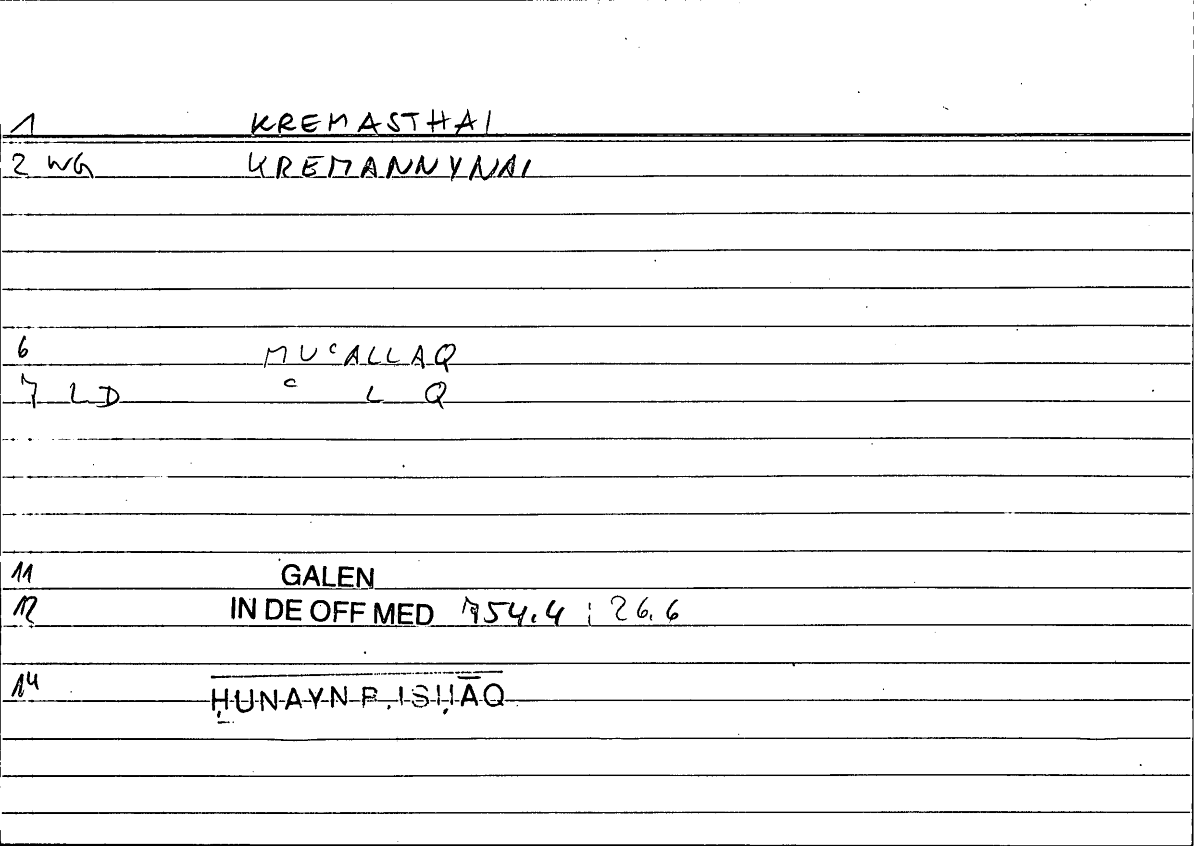 1 KREMASTHAI
2 WG KREMANNYNAI
6 MUʿALLAQ
7 LD ʿ L Q
11 GALEN
12 IN DE OFF MED 754.4 ; 26.6
14 ḤUNAYN B. ISḤĀQ